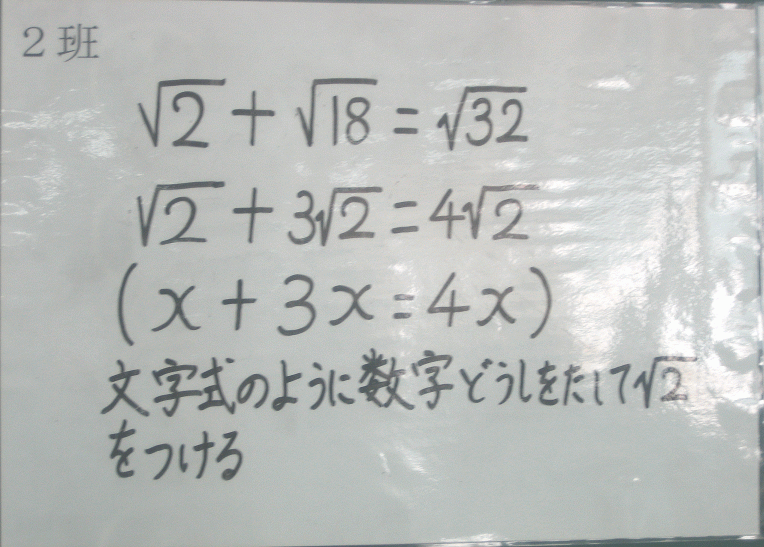 2班
√2 + √18 = √32
√2 + 3√2 = 4√2
(x + 3x = 4x)
文字式のように数字どうしをたして√2
をつける